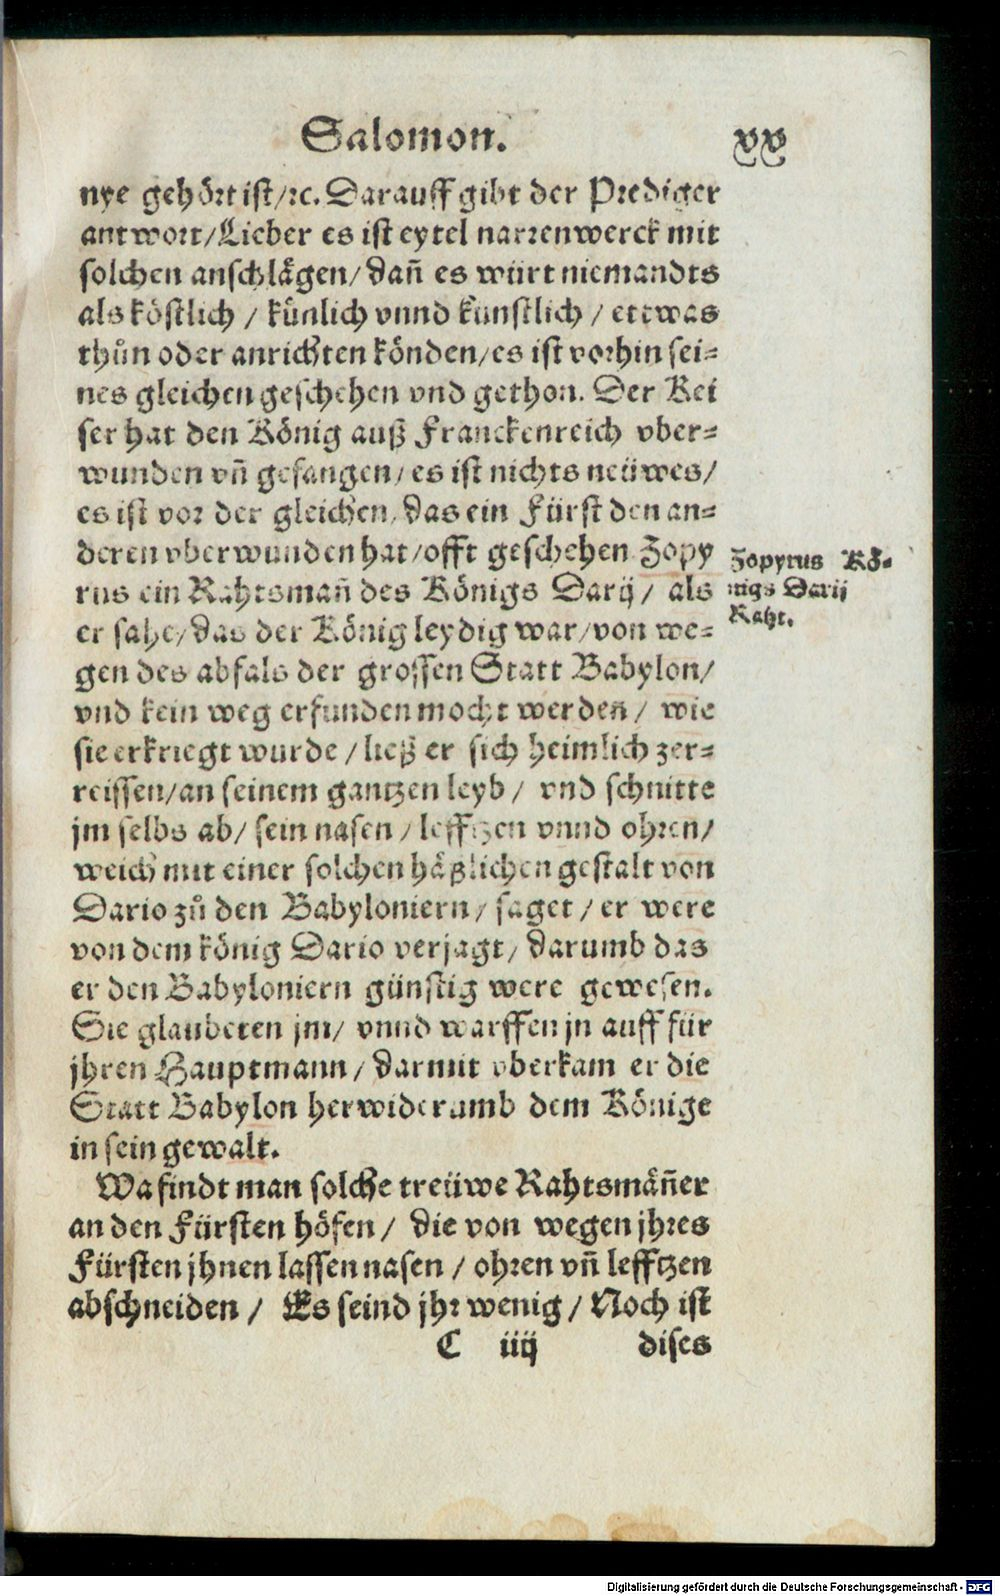 Salomon. xx
nye gehört ist/ꝛc. Darauff gibt der Prediger
antwort/Lieber es ist eytel narrenwerck mit
solchen anschlägen/dañ es würt niemandts
als köstlich / künlich vnnd künstlich / ettwas
thůn oder anrichten könden/es ist vorhin sei=
nes gleichen geschehen vnd gethon. Der Kei
ser hat den König auß Franckenreich vber=
wunden vñ gefangen/es ist nichts neüwes/
es ist vor der gleichen, das ein Fürst den an=
deren vberwunden hat/offt geschehen. Zopy
rus ein Rahtsmañ des Königs Darij/ als
er sahe/das der König leydig war/von we=
gen des abfals der grossen Statt Babylon/
vnd kein weg erfunden mocht werden/ wie
sie erkriegt wurde/ließ er sich heimlich zer=
reissen/an seinem gantzen leyb/ vnd schnitte
jm selbs ab/ sein nasen/lefftzen vnnd ohren/
weich mit einer solchen häßlichen gestalt von
Dario zů den Babyloniern/ saget/er were
von dem könig Dario verjagt/darumb das
er den Babyloniern günstig were gewesen.
Sie glaubeten jm/ vnnd warffen jn auff für
jhren Hauptmann/darmit vberkam er die
Statt Babylon herwiderumb dem Könige
in sein gewalt.
Wa findt man solche treüwe Rahtsmäñer
an den Fürsten höfen/ die von wegen jhres
Fürsten jhnen lassen nasen/ohren vñ lefftzen
abschneiden/ Es seind jhr wenig/Noch ist
C iiij dises
Zopyrus Kö=
nigs Darij
Raht.
Digitalisierung gefördert durch die Deutsche Forschungsgemeinschaft - DFG